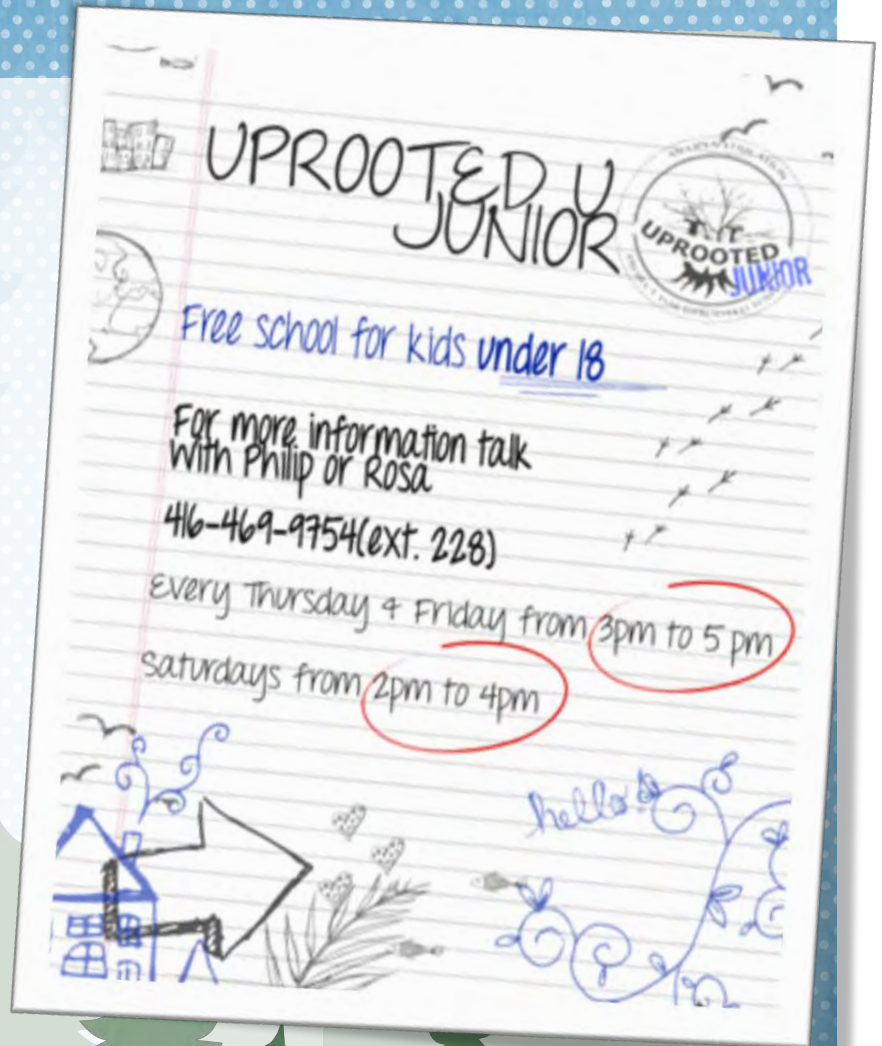 UPROOTED U
JUNIOR
UPROOTED
JUNIOR
Free school for kids under 18
For more information talk
with Philip or Rosa
416-469-9754(ext. 228)
Every Thursday & Friday from 3pm to 5 pm
Saturdays from 2pm to 4pm
hello